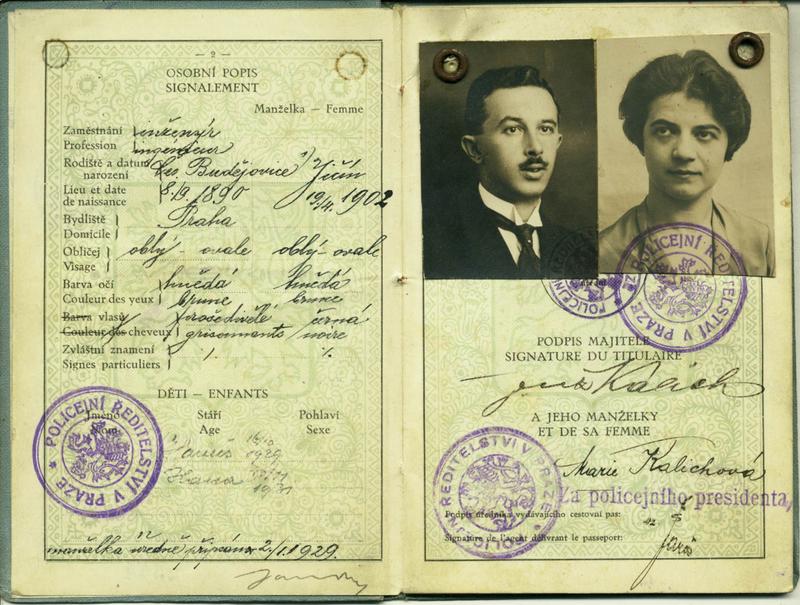 — 2 —
OSOBNÍ POPIS
SIGNALEMENT
Manželka — Femme
Zaměstnání inženýr
Profession ingénieur
Rodiště a datum narození Čes. Budějovice Jičín
Lieu et date de naissance 1890 1902
Bydliště Praha
Domicile
Obličej oblý - ovale oblý - ovale
Visage
Barva očí hnědá hnědá
Couleur des yeux brune brune
Barva vlasů prošedivělé černá
Couleur des cheveux grisonnants noire
Zvláštní znamení
Signes particuliers
DĚTI - ENFANTS
Jméno Stáří Pohlaví
Nom Age Sexe
1929
Hana
1931
POLICEJNÍ ŘEDITELSTVÍ V PRAZE
manželka úředně připsána 2/1.1929.
POLICEJNÍ ŘEDITELSTVÍ V PRAZE
PODPIS MAJITELE
SIGNATURE DU TITULAIRE
Kalich
A JEHO MANŽELKY
ET DE SA FEMME
Marie Kalichová
POLICEJNÍ ŘEDITELSTVÍ V PRAZE
Za policejního presidenta
Podpis úředníka vydávajícího cestovní pas:
Signature de l'agent délivrant le passeport: